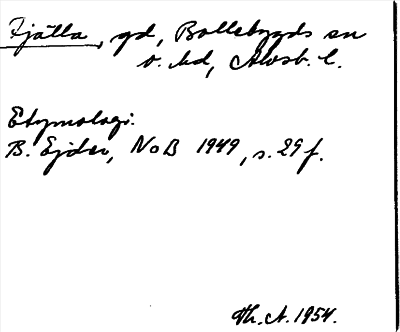 Fjälla, gd, Bollebygds sn
o. hd, Älvsb. l.
Etymologi:
B. Ejder, NoB 1949, s. 29 f.
Th. A. 1954.